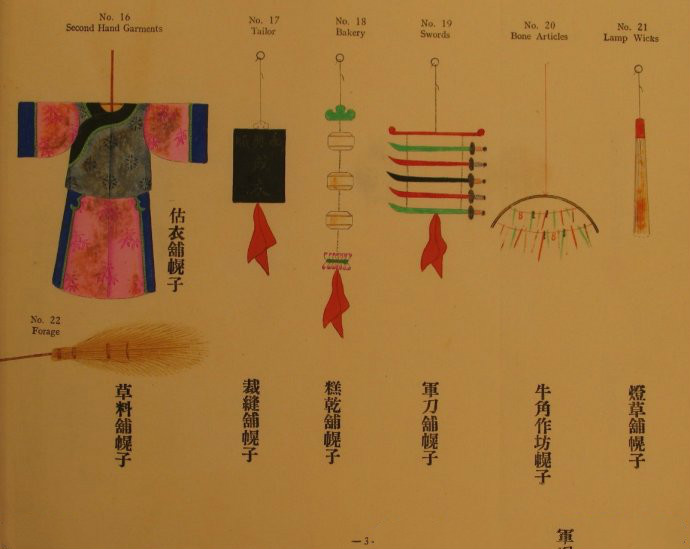 No. 16
Second Hand Garments
No. 17
Tailor
No. 18
Bakery
No. 19
Swords
No. 20
Bone Articles
No. 21
Lamp Wicks
估衣舖幌子
No. 22
Forage
草料舖幌子
裁縫舖幌子
糕乾舖幌子
軍刀舖幌子
牛角作坊幌子
燈草舖幌子
軍
—3-